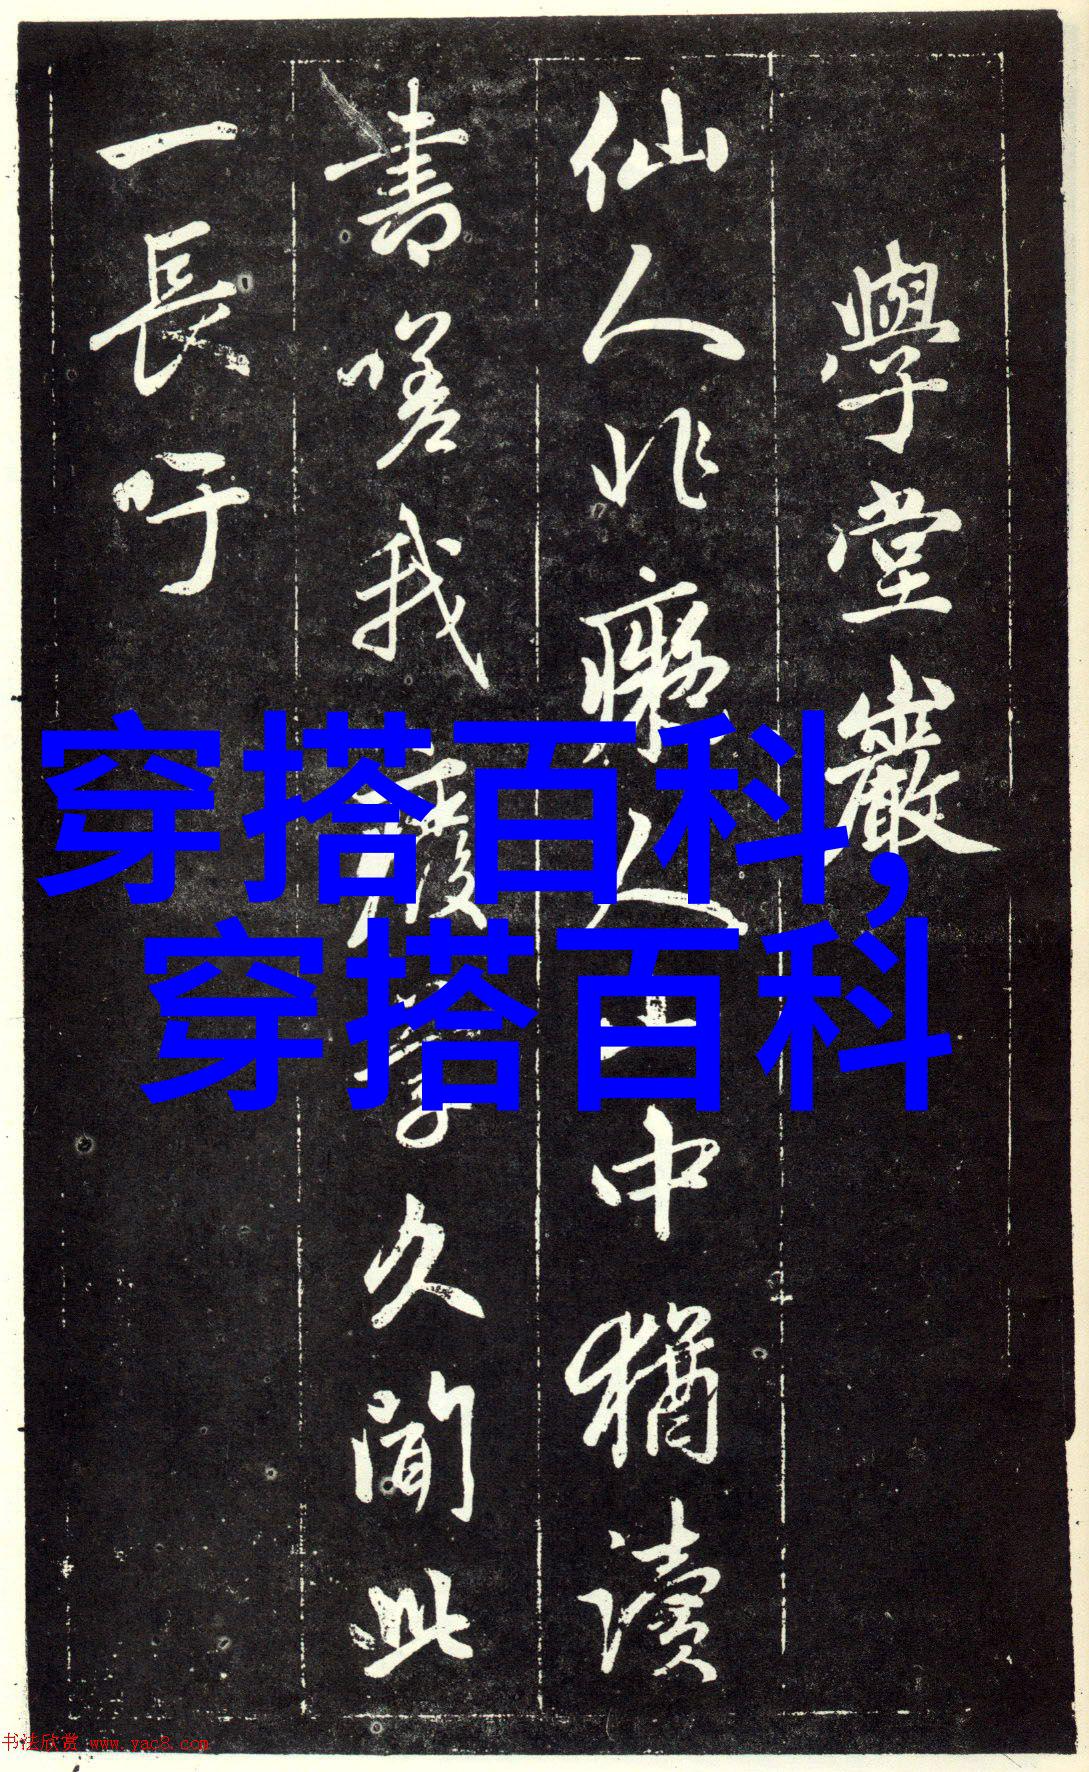 學堂巖
仙人非癡人山中猶讀
書嗟我廢學久聞此
一長吁
穿搭百科,
穿搭百科
书法欣赏 www.yac8.com